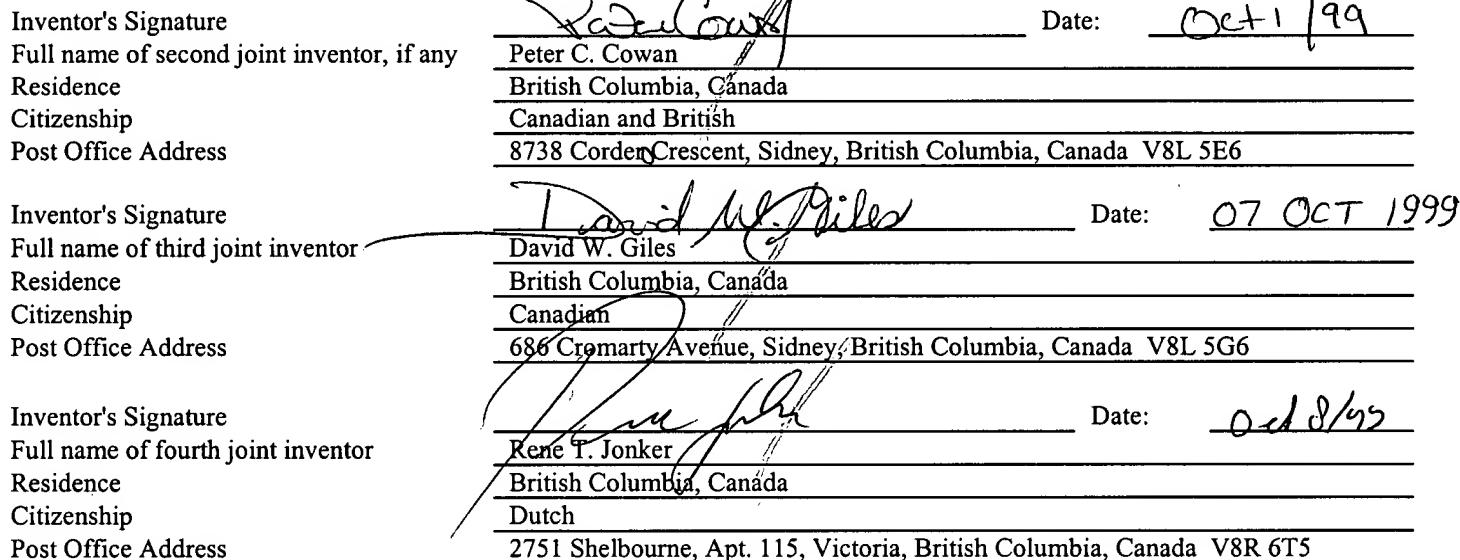 Inventor's Signature Peter Cowan Date: Oct 1/99
Full name of second joint inventor, if any Peter C. Cowan
Residence British Columbia, Canada
Citizenship Canadian and British
Post Office Address 8738 Corder Crescent, Sidney, British Columbia, Canada V8L 5E6
Inventor's Signature David W. Giles Date: 07 OCT 1999
Full name of third joint inventor David W. Giles
Residence British Columbia, Canada
Citizenship Canadian
Post Office Address 686 Cromarty Avenue, Sidney, British Columbia, Canada V8L 5G6
Inventor's Signature Date: Oct 8/99
Full name of fourth joint inventor Rene T. Jonker
Residence British Columbia, Canada
Citizenship Dutch
Post Office Address 2751 Shelbourne, Apt. 115, Victoria, British Columbia, Canada V8R 6T5